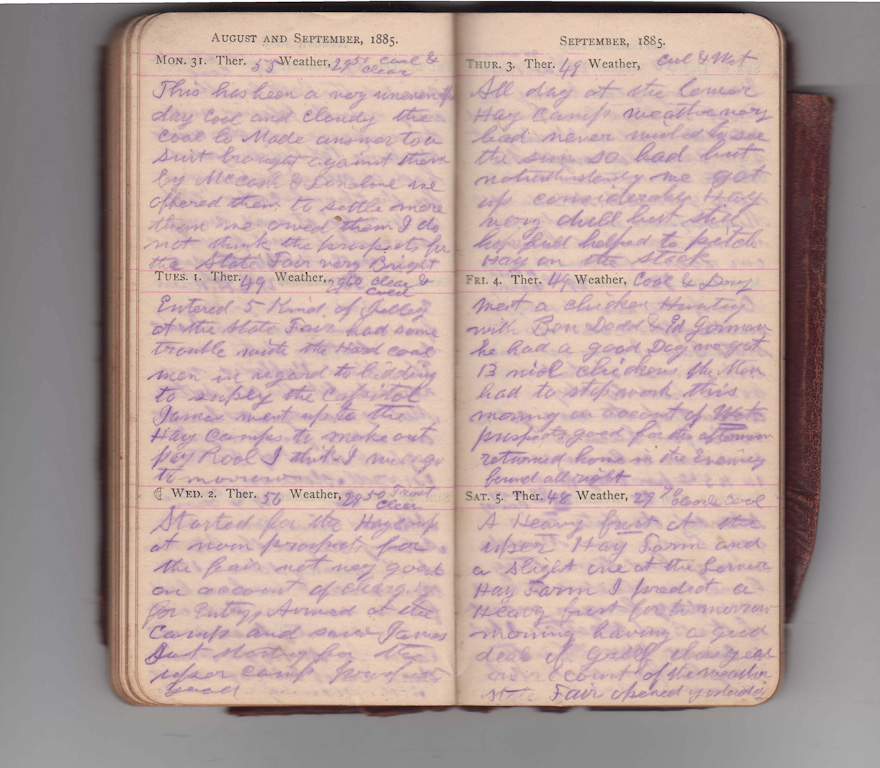 AUGUST AND SEPTEMBER, 1885.
MON. 31. Ther. 55 Weather, 29 50 Cool &
Clear
This has been a very uneventful
day cool and cloudy the
Coal Co Made answer to a
Suit brought against them
by McCash & we
offered them to settle more
than we owed them I do
not think the prospects for
the State Fair very Bright
TUES. 1. Ther. 49 Weather, 29 60 clear &
cool
Entered 5 Kind of
at the State Fair had some
trouble with the Hard coal
men in regard to bidding
to suply the Capitol
James went up to the
Hay Camps to make out
Pay Rool I think I will go
to morrow
WED. 2. Ther. 56 Weather, 29 50
Clear
Started for the Hay camp
at noon prospect for
the fair not very good
on account of charging
for Entry Arrived at the
Camp and saw James
Just starting for the
upper camp
good
SEPTEMBER, 1885.
THUR. 3. Ther. 49 Weather, Cool & Wet
All day at the Lower
Hay Camp weather very
bad never wished to see
the sun so bad but
notwithstandg we got
up considerable Hay
very chill but still
helped to pitch
Hay on the stack
FRI. 4. Ther. 46 Weather, Cool & Dry
Went a chicken Hunting
with Ben Dodd & Ed Gorman
he had a good Dog we got
13 nice chickens the Men
had to stop work this
morning on account of Wet
prospects good for the afternoon
returned home in the Evening
found all right
SAT. 5. Ther. 48 Weather, 29 cool
A Heavy frost at the
upper Hay Farm and
a slight one at the Lower
Hay Farm I predict a
Heavy frost for to morrow
morning having a good
deal of this year
on account of the weather
State Fair opened yesterday